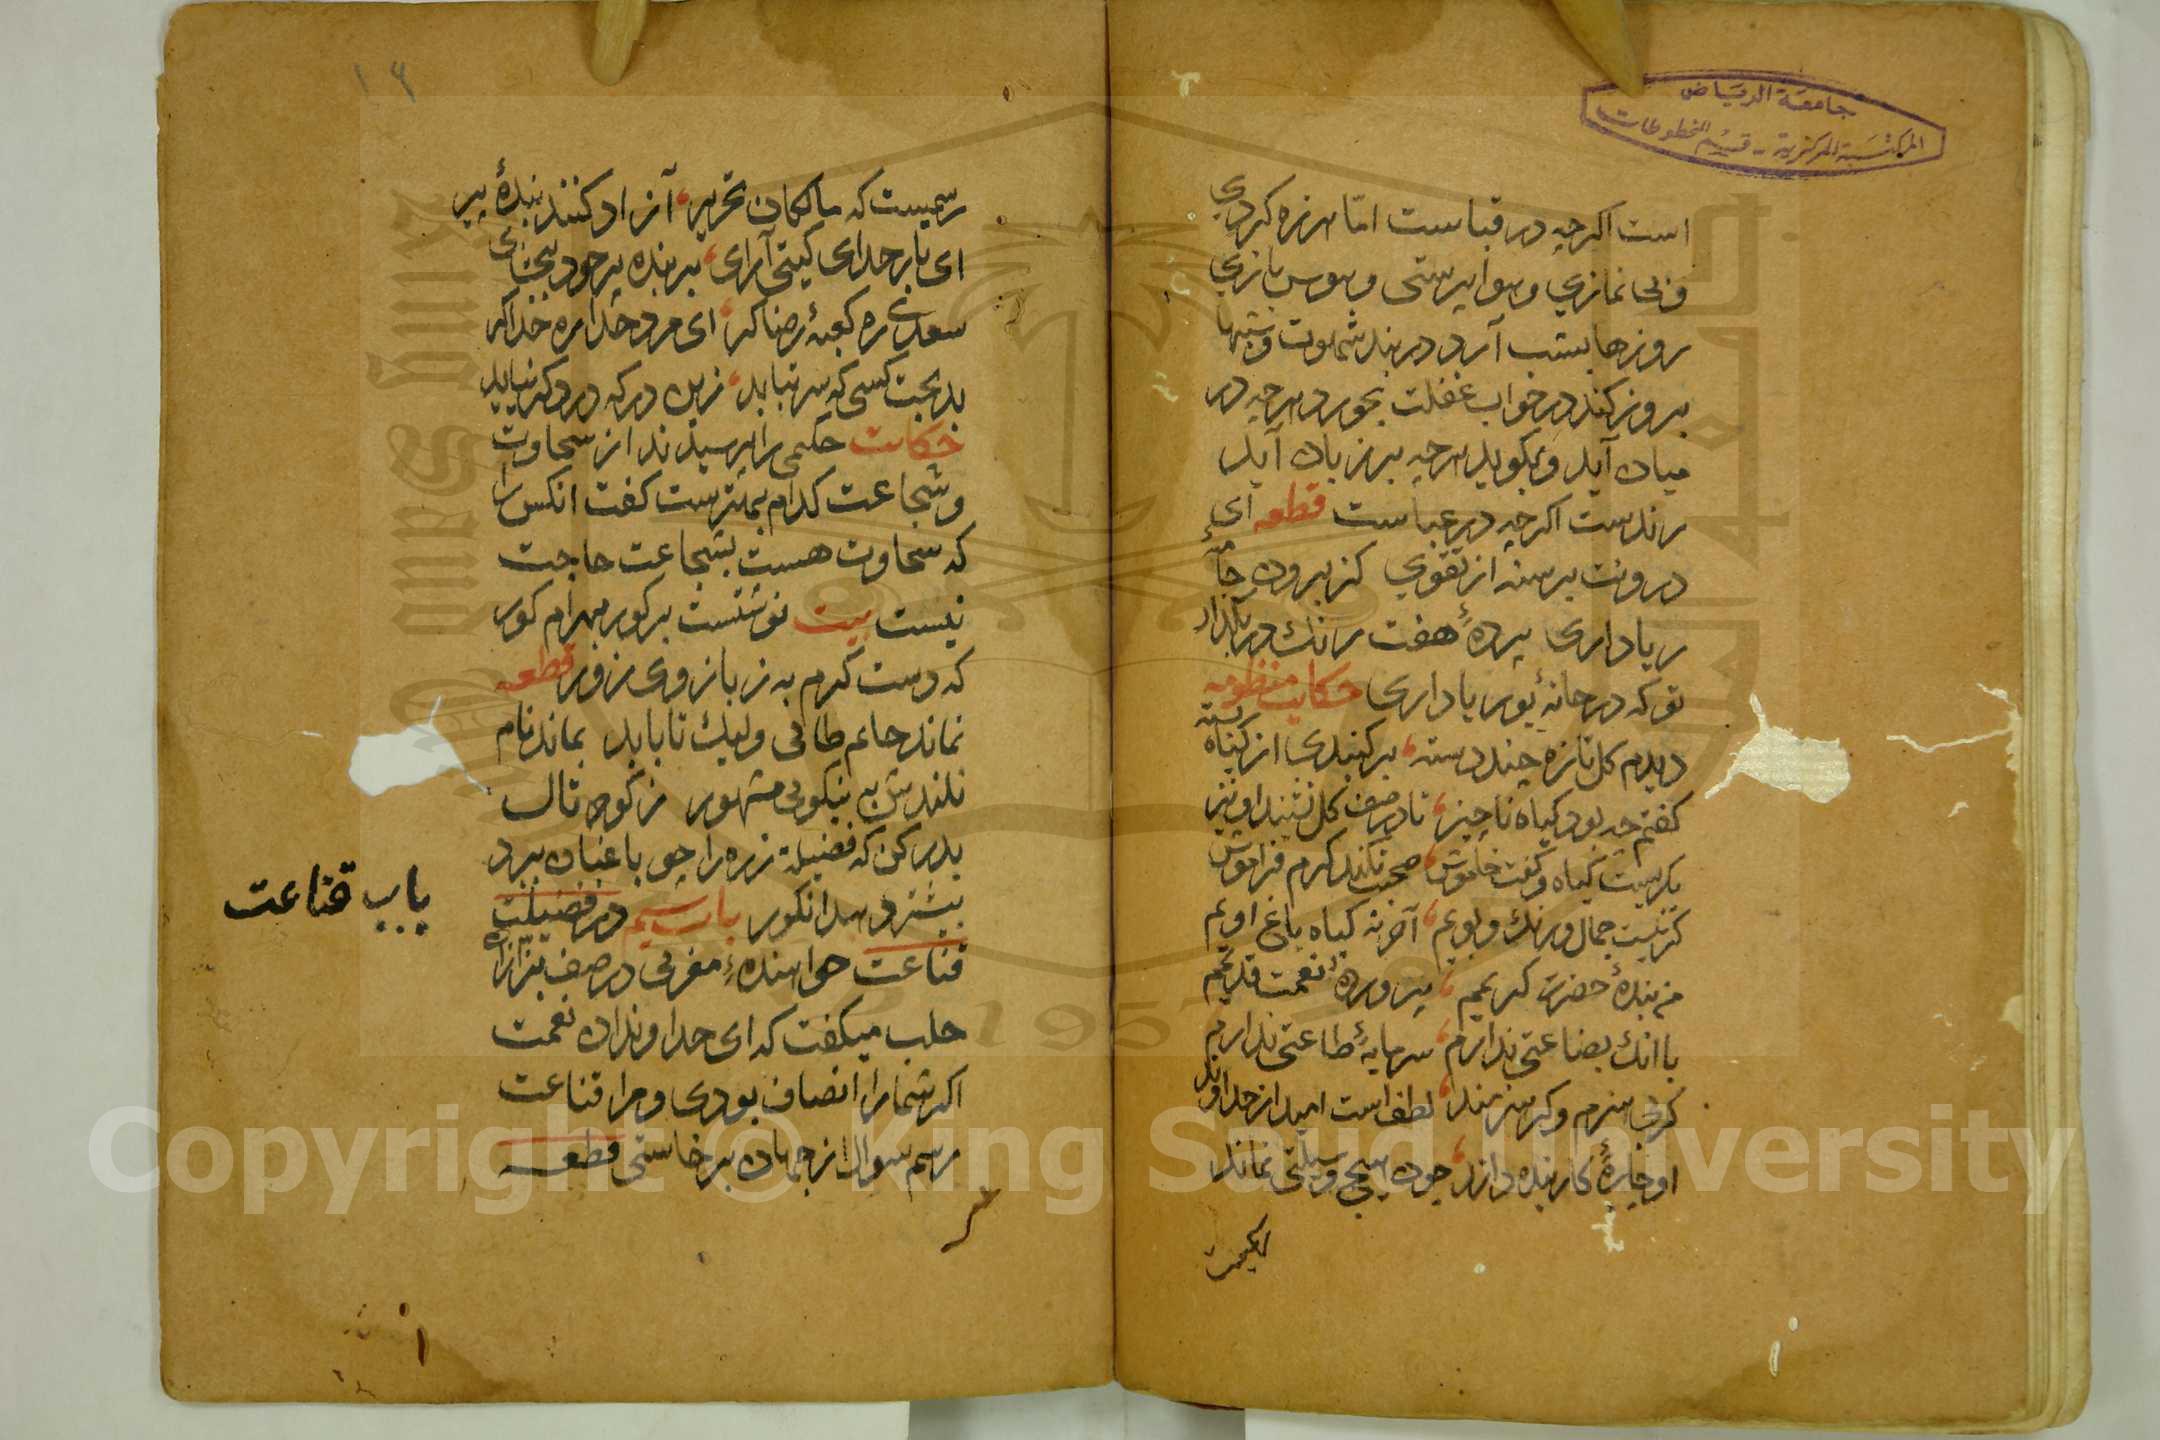 جامعة الرياض
المكتبة المركزية - قسم المخطوطات
است اکرچه در قباست امّا هرزه کردي
و بی نمازي و هوا پرستی و هوس بازي
روزها بشب آرد در بند شهوت و شبها
بروز کند در خواب غفلت بخورد هرچه در
میان آید و بکوید هرچه بر زبان آید
رندست اکرچه در عباست قطعه ای
درونت برهنه از تقوي کز برون جامهٔ
ریا داری پردهٔ هفت رنك در بکذار
تو که در خانه بوریا داری حکایت منظومه
دیدم کل تازه چند دسته بر کنبدی از کیاه بسته
کفتم چه بود کیاه ناچیز تا در صف کل نشیند او نیز
بکریست کیاه و کفت خاموش صحبت نکند کرم فراموش
کر نیست جمال و رنك و بویم آخر نه کیاه باغ اویم
من بندهٔ حضرت کریمم پروردهٔ نعمت قدیمم
با انك بضاعتی ندارم سرمایهٔ طاعتی ندارم
کر بی هنرم و کر هنرمند لطف است امید از خداوند
او چارهٔ کار بنده داند چون هیچ وسیلتی نماند
رسمیست که مالکان تحریر آزاد کنند بندهٔ پیر
ای بار خدای کیتی آرای بر بنده پیر خود ببخشای
سعدی ره کعبهٔ رضا کیر ای مرد خدا ره خدا کیر
بدبخت کسی که سر بتابد زین در که در دکر نیابد
حکایت حکیمی را پرسیدند از سخاوت
و شجاعت کدام بهترست کفت انکس را
که سخاوت هست بشجاعت حاجت
نیست بیت نوشتست بر کور بهرام کور
که دست کرم به ز بازوی زور قطعه
نماند حاتم طائی ولیك تا بابد بماند نام
بلندش به نیکویی مشهور زکوة مال
بدر کن که فضیلة رزه را چو باغبان ببرد
بیشتر دهد انکور باب سیم در فضیلت
قناعت خواهندهٔ مغربی در صف بزازان
حلب میکفت که ای خداوندان نعمت
اکر شما را انصاف بودی و مرا قناعت
رسم سوال از جهان بر خاستی قطعه
باب قناعت
Copyright © King Saud University
1957